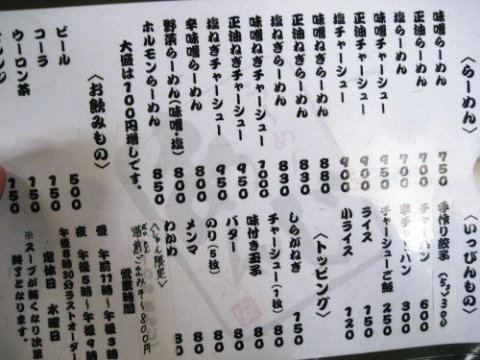 〈らーめん〉
味噌らーめん 750
正油らーめん 700
塩らーめん 700
味噌チャーシュー 950
正油チャーシュー 900
塩チャーシュー 900
味噌ねぎらーめん 880
正油ねぎらーめん 830
塩ねぎらーめん 830
味噌ねぎチャーシュー 1000
正油ねぎチャーシュー 950
塩ねぎチャーシュー 950
辛味噌らーめん 800
野菜らーめん(味噌・塩) 880
ホルモンらーめん 850
大盛は100円増しです。
〈お飲みもの〉
ビール 500
コーラ 150
ウーロン茶 150
150
〈いっぴんもの〉
手作り餃子(5ヶ) 300
チャーハン 600
半チャーハン 400
チャーシューご飯 250
ライス 150
小ライス 120
〈トッピング〉
しらがねぎ 150
チャーシュー(1枚) 80
味付き玉子 80
バター 80
のり(5枚) 80
メンマ 80
わかめ 80
800円
営業時間
昼 午前11時〜午後3時
夜 午後5時〜午後9時
午後8時30分ラストオーダー
定休日 水曜日
※スープが無くなり次第
終了となります。